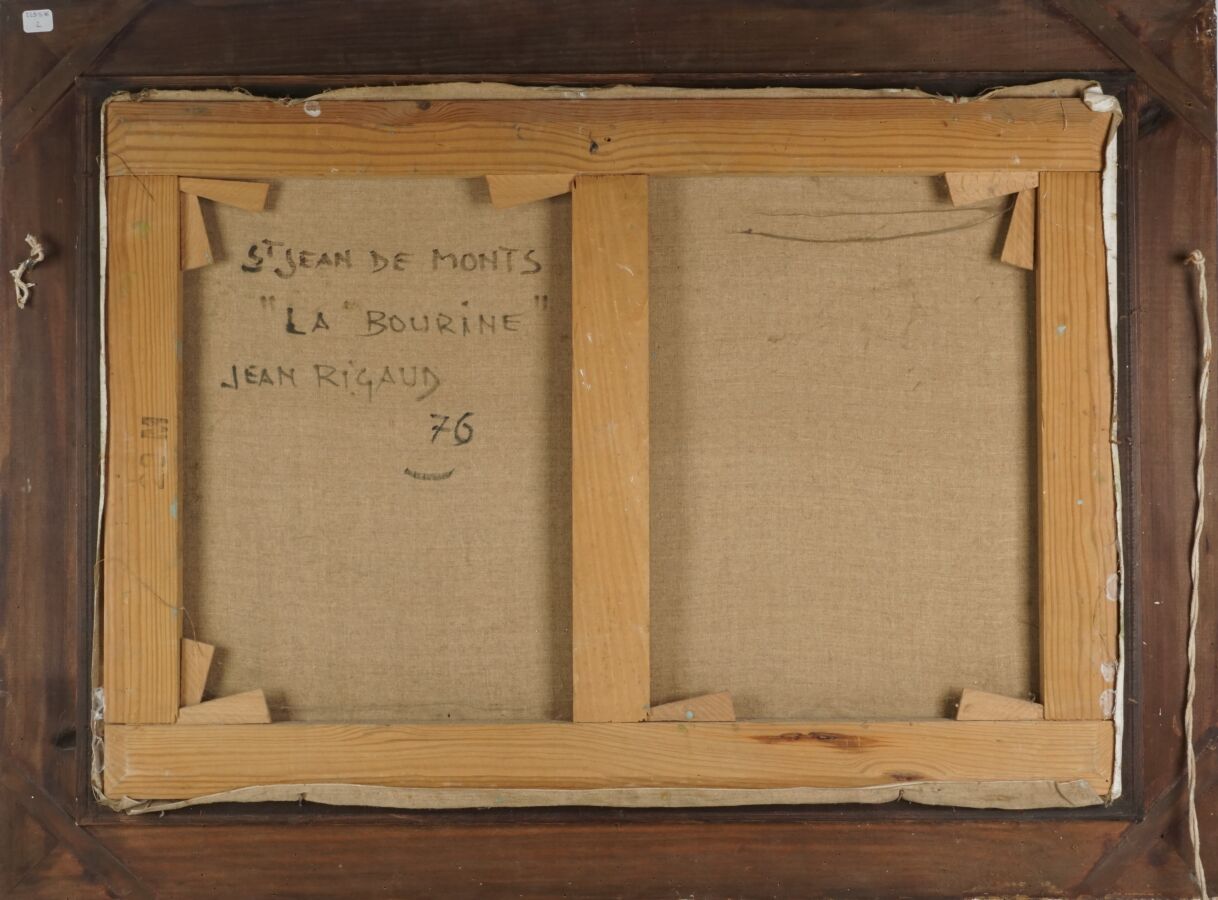 ST JEAN DE MONTS
"LA BOURINE"
JEAN RIGAUD
76
20 M